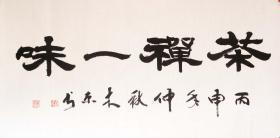 茶禪一味
丙申年仲秋木东书